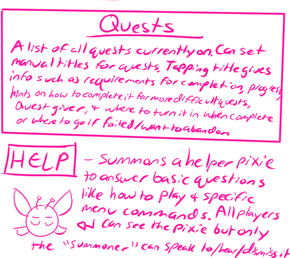 Quests
A list of all quests currently on. Can set
manual titles for quests. Tapping title gives
info such as requirements for completion, progress,
hints on how to complete it for more difficult quests,
Quest giver, & where to turn it in when complete
or where to go if failed/want to abandon
HELP - Summons a helper pixie
to answer basic questions
like how to play & specific
menu commands. All players
can see the pixie but only
the "summoner" can speak to/hear/dismiss it